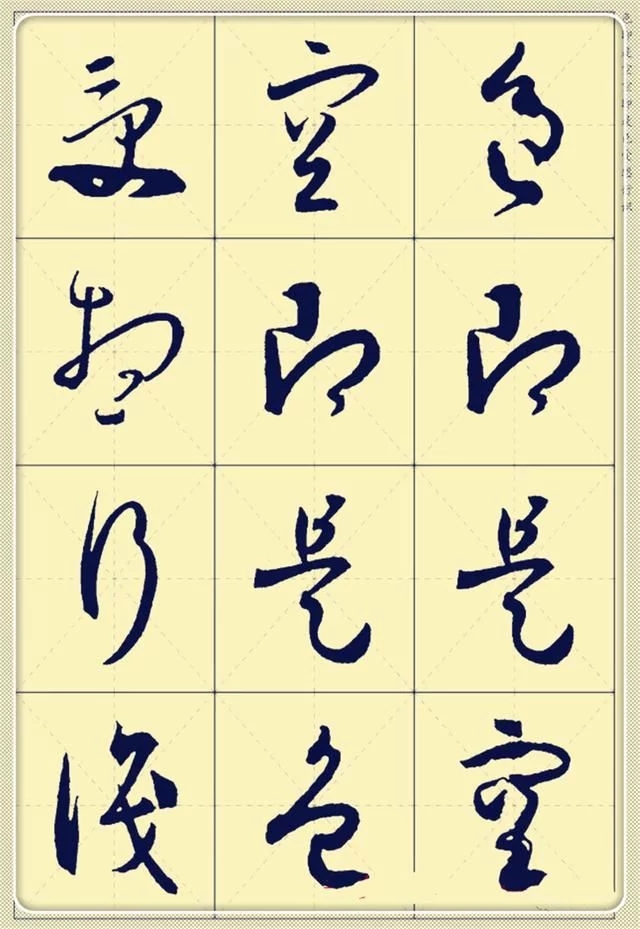 色即是空
空即是色
受想行识